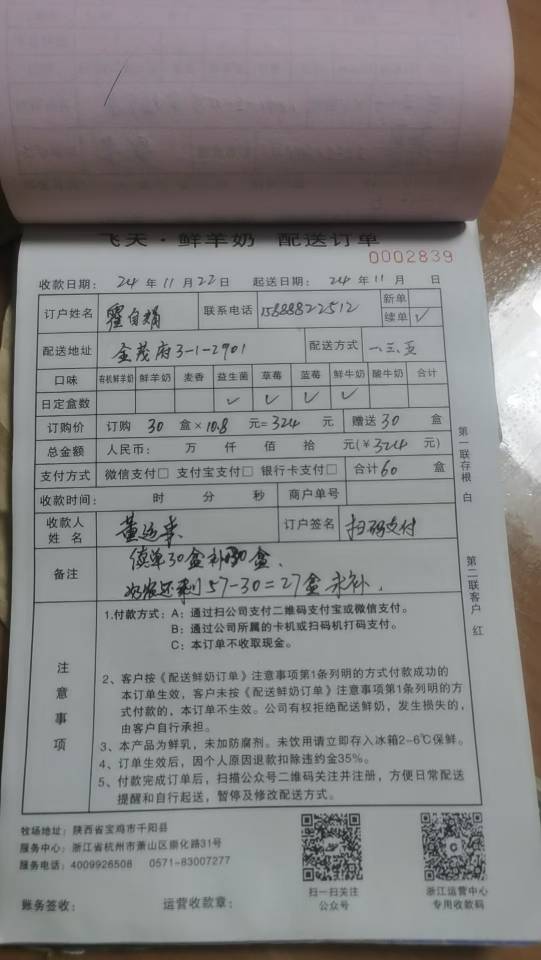 飞天·鲜羊奶 配送订单
0002839
收款日期： 24 年 11 月 22 日 起送日期： 24 年 11 月 日
订户姓名 联系电话 15888822512 新单
续单 ✓
配送地址 金茂府3-1-2901 配送方式 一.三.五
口味 有机鲜羊奶 鲜羊奶 麦香 益生菌 草莓 蓝莓 鲜牛奶 酸牛奶 合计
日定盒数 ✓ ✓ ✓ ✓
订购价 订购 30 盒×10.8 元=324 元 赠送 30 盒
总金额 人民币： 万 仟 佰 拾 元(￥324 元)
支付方式 微信支付□ 支付宝支付□ 银行卡支付□ 合计 60 盒
收款时间： 时 分 秒 商户单号
收款人姓名 订户签名 扫码支付
备注 续单30盒补30盒、
还剩57-30=27盒未补.
第一联存根 白
第二联客户 红
注意事项
1.付款方式：A：通过扫公司支付二维码支付宝或微信支付。
B：通过公司所属的卡机或扫码机打码支付。
C：本订单不收取现金。
2、客户按《配送鲜奶订单》注意事项第1条列明的方式付款成功的
本订单生效，客户未按《配送鲜奶订单》注意事项第1条列明的方
式付款的，本订单不生效。公司有权拒绝配送鲜奶，发生损失的，
由客户自行承担。
3、本产品为鲜乳，未加防腐剂。未饮用请立即存入冰箱2-6℃保鲜。
4、订单生效后，因个人原因退款扣除违约金35%。
5、付款完成订单后，扫描公众号二维码关注并注册，方便日常配送
提醒和自行起送，暂停及修改配送方式。
牧场地址：陕西省宝鸡市千阳县
服务中心：浙江省杭州市萧山区崇化路31号
服务电话：4009926508 0571-83007277
扫一扫关注
公众号
浙江运营中心
专用收款码
账务签收： 运营收款章：